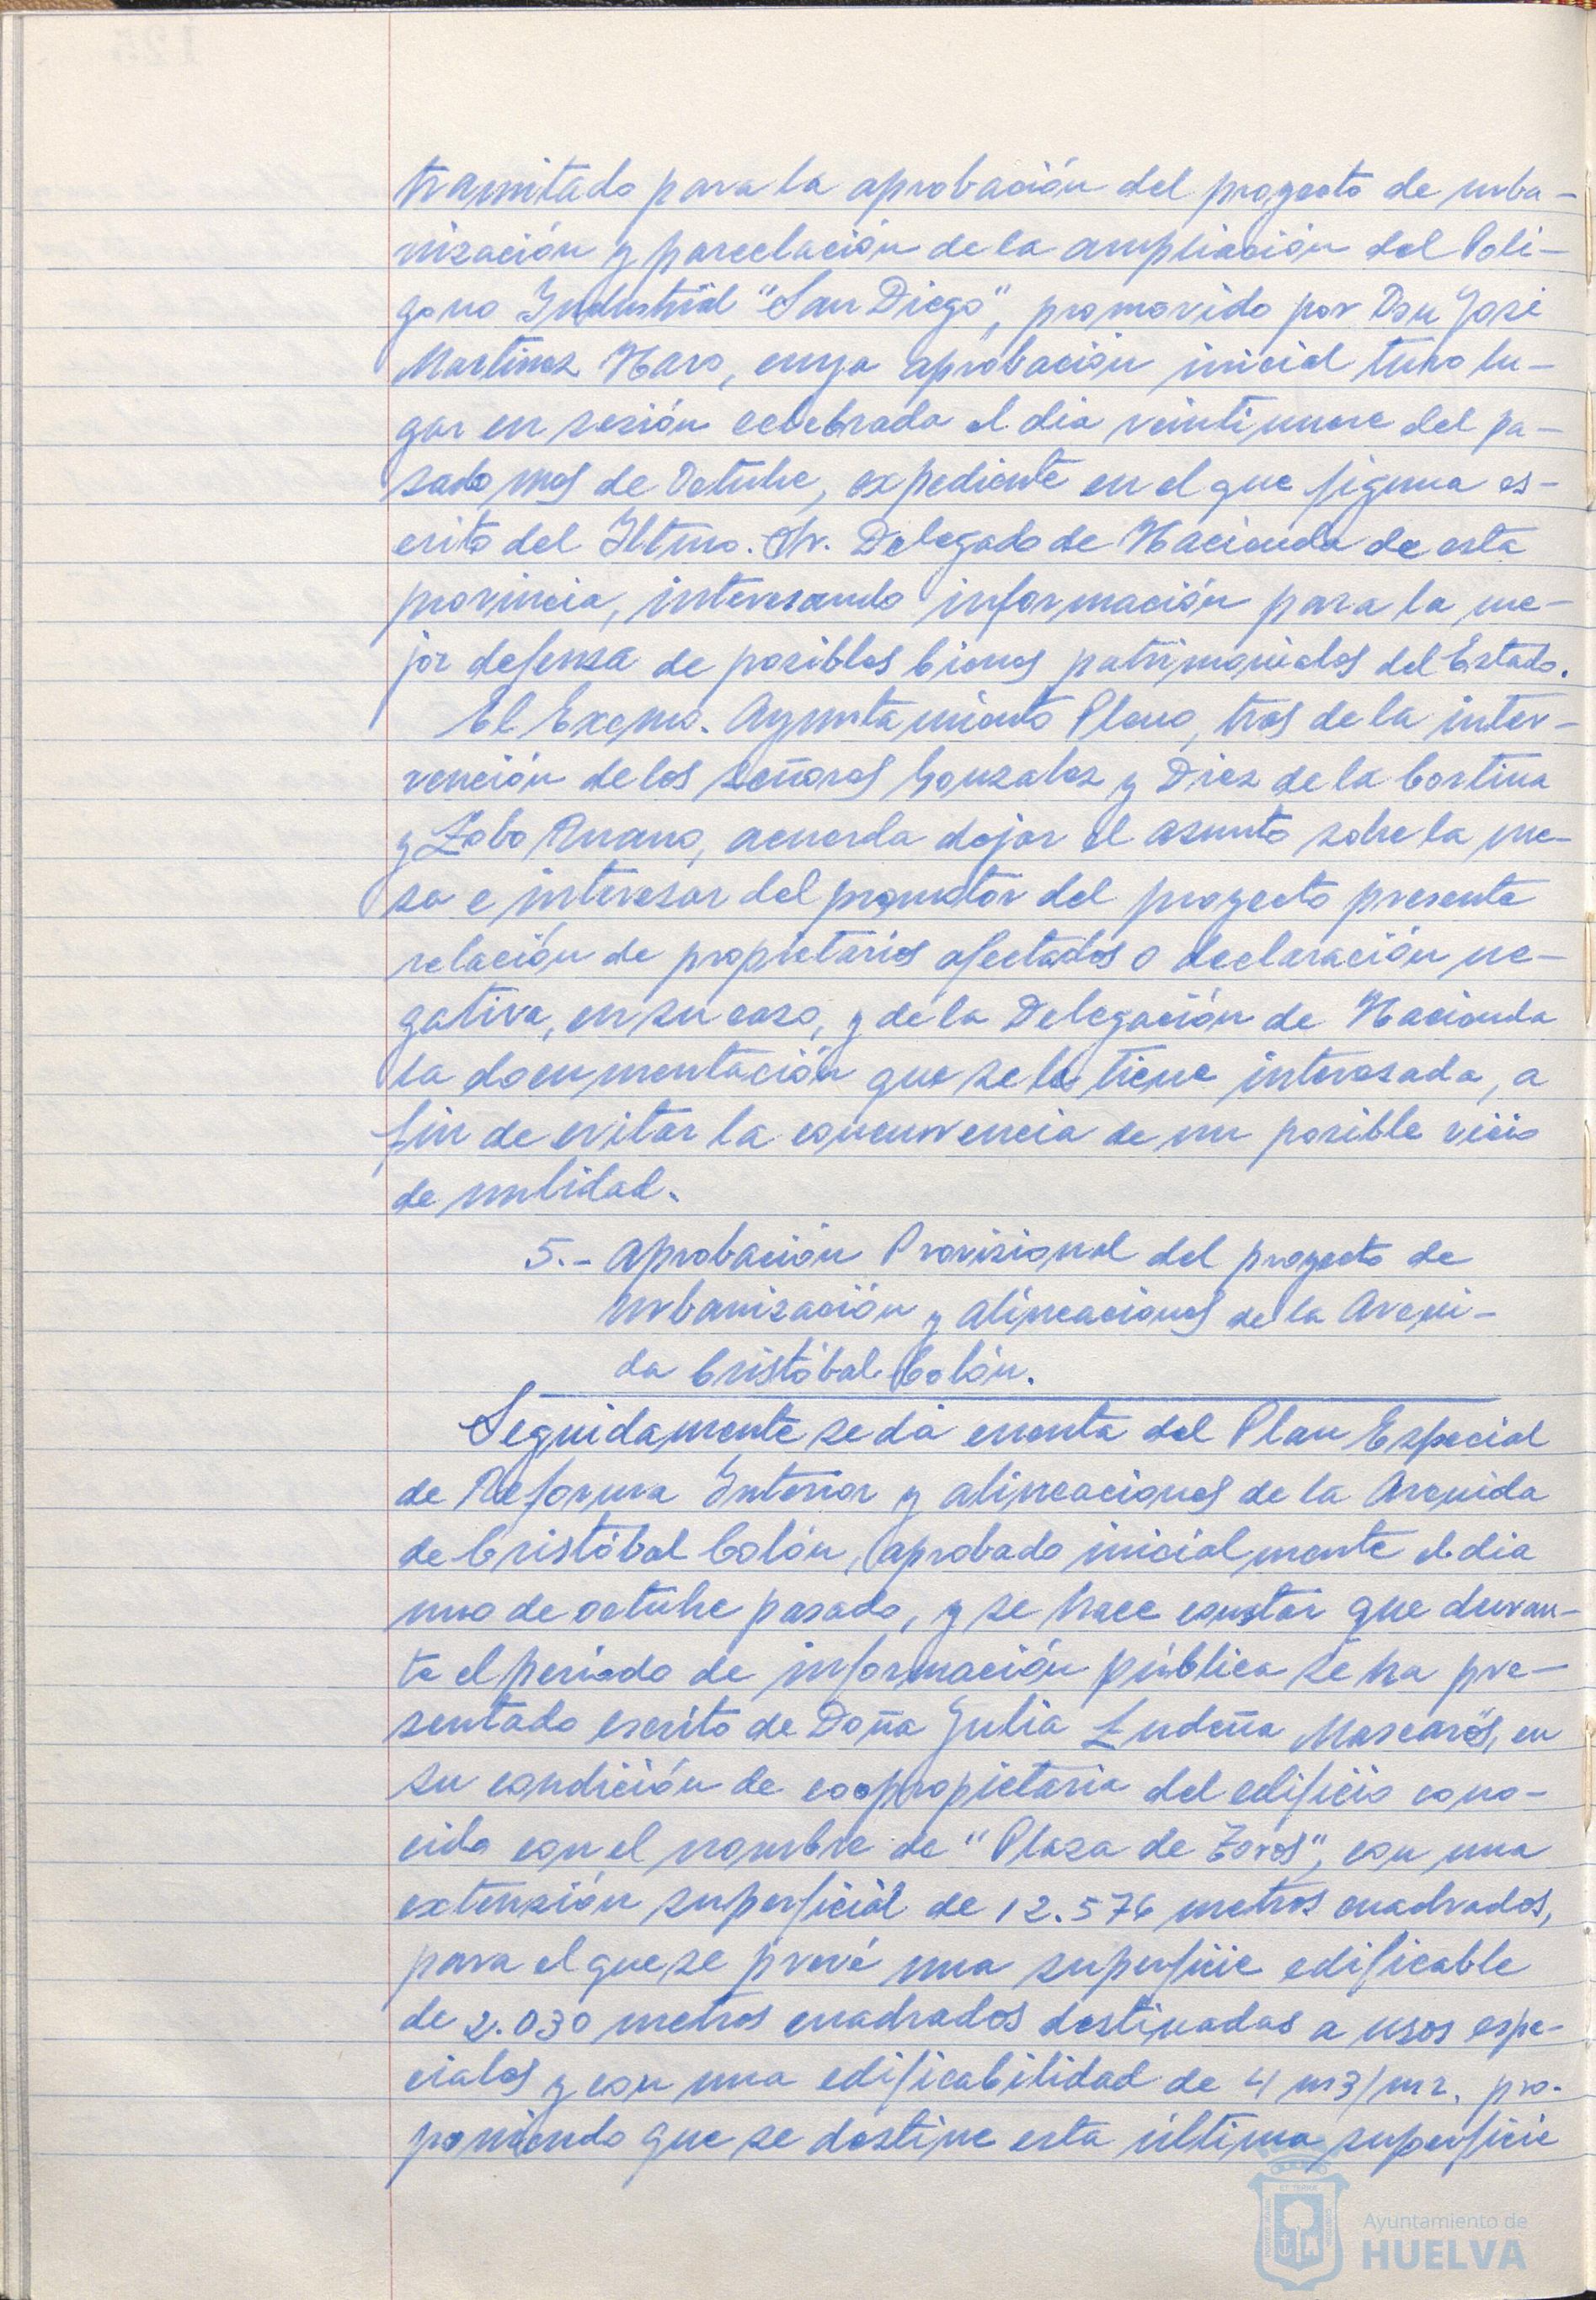 tramitado para la aprobación del proyecto de urba-
nización y parcelación de la ampliación del Polí-
gono Industrial "San Diego", promovido por Don José
Martinez Haro, cuya aprobación inicial tuvo lu-
gar en sesión celebrada el dia veintinueve del pa-
sado mes de Octubre, expediente en el que figura es-
crito del Iltmo. Sr. Delegado de Hacienda de esta
provincia, interesando información para la me-
jor defensa de posibles bienes patrimoniales del Estado.
El Excmo. Ayuntamiento Pleno, tras de la inter-
vención de los señores González y Diez de la Cortina
y Lobo Ruano, acuerda dejar el asunto sobre la me-
sa e interesar del promotor del proyecto presente
relación de propietarios afectados o declaración ne-
gativa, en su caso, y de la Delegación de Hacienda
la documentación que se le tiene interesada, a
fin de evitar la concurrencia de un posible vicio
de nulidad.
5.- Aprobación Provisional del proyecto de
Urbanización y alineaciones de la Aveni-
da Cristóbal Colón.
Seguidamente se dá cuenta del Plan Especial
de Reforma Interior y alineaciones de la Avenida
de Cristóbal Colón, aprobado inicialmente el dia
uno de octubre pasado, y se hace constar que duran-
te el periodo de información pública se ha pre-
sentado escrito de Doña Julia Ludeña Mascarós, en
su condición de coopropietaria del edificio cono-
cido con el nombre de "Plaza de Toros", con una
extensión superficial de 12.576 metros cuadrados,
para el que se prevé una superficie edificable
de 2.030 metros cuadrados destinadas a usos espe-
ciales y con una edificabilidad de 4 m3/m2, pro-
poniendo que se destine esta última superficie
Ayuntamiento de
HUELVA